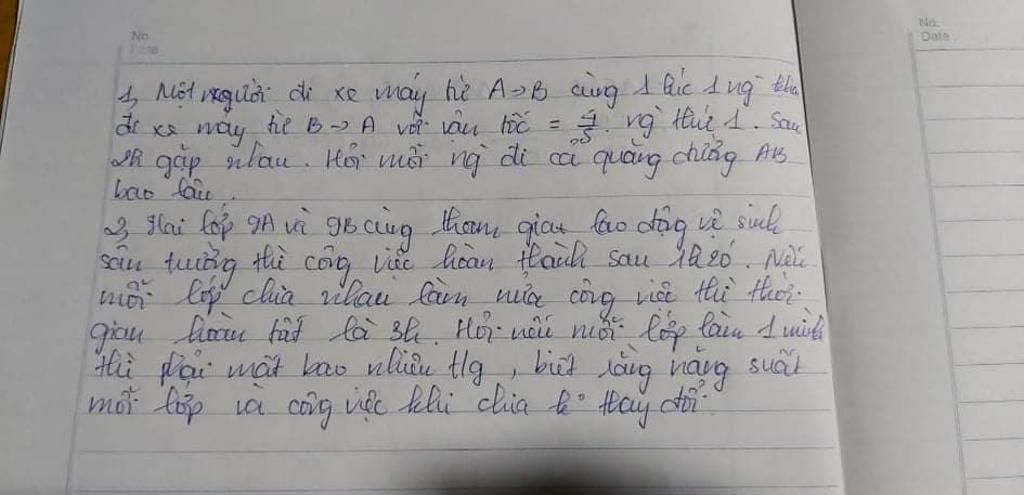 No.
Date
No.
Date
1, Một người đi xe máy từ A → B cùng 1 lúc 1 ng` khác
đi xe máy từ B → A với vận tốc = 4/5. ng` thứ 1. Sau
2h gặp nhau. Hỏi mỗi ng` đi cả quãng đường AB
bao lâu.
2, Hai lớp 9A và 9B cùng tham gia lao động vệ sinh
sân trường thì công việc hoàn thành sau 1h20'. Nếu
mỗi lớp chia nhau làm nửa công việc thì thời
gian hoàn tất là 3h. Hỏi nếu mỗi lớp làm 1 mình
thì phải mất bao nhiêu tg, biết rằng năng suất
mỗi lớp và công việc khi chia k° thay đổi.